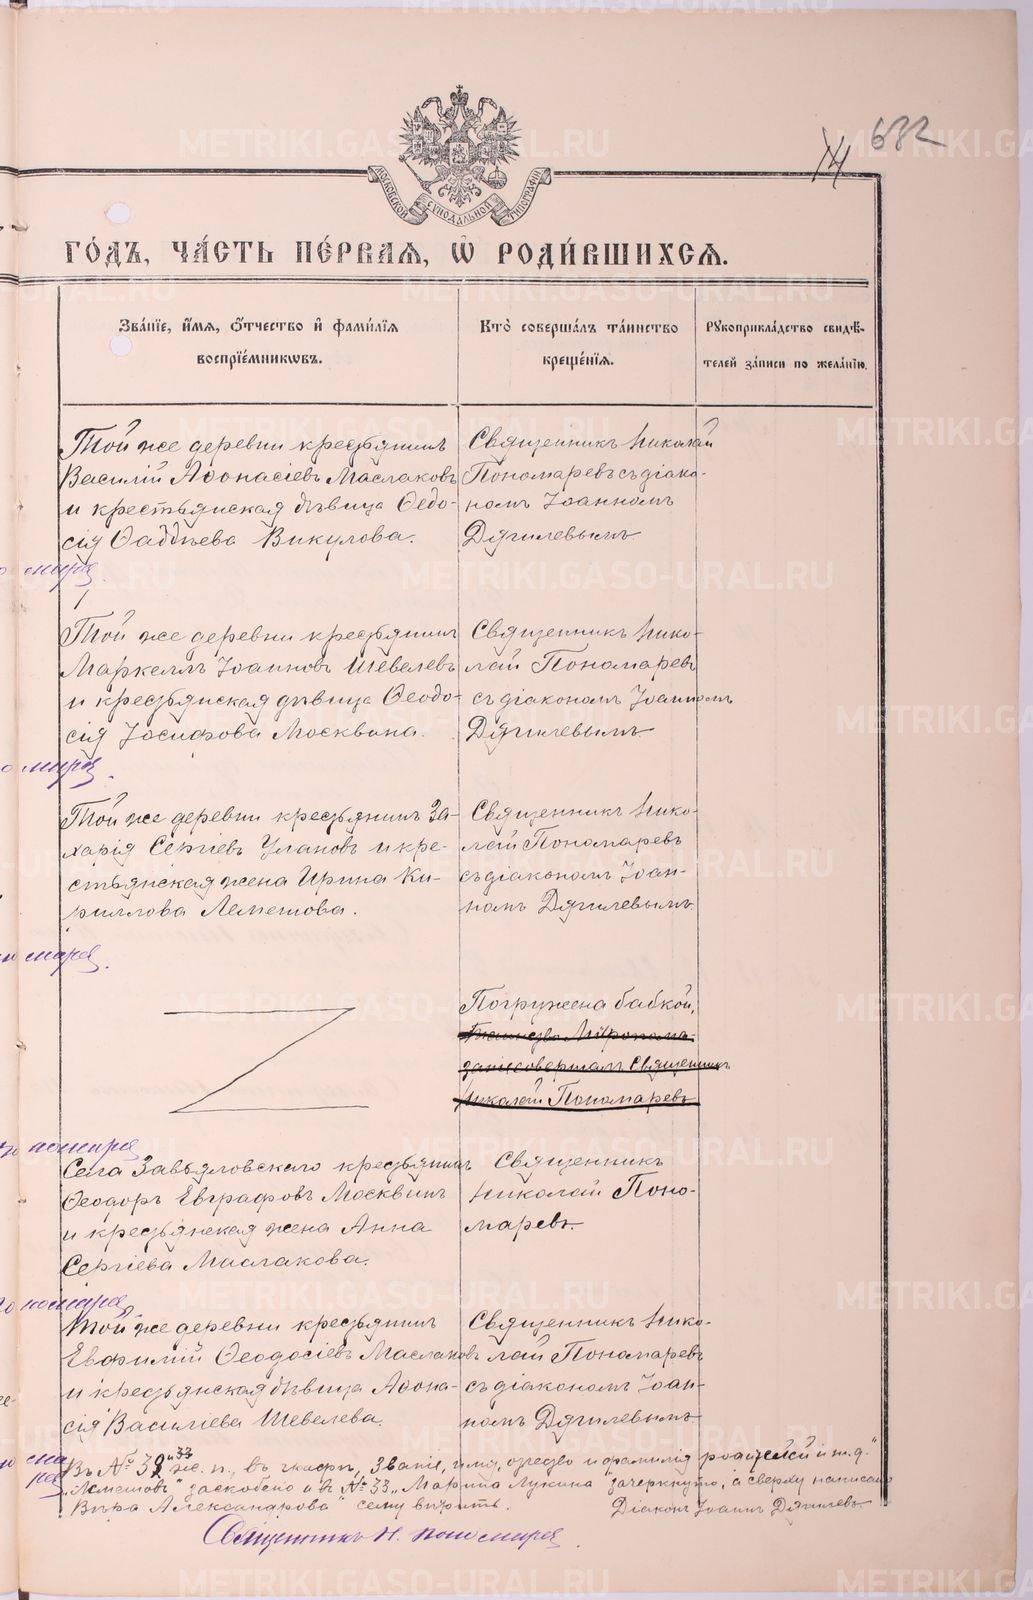 632
14
МОСКОВСКОЙ СѴНОДАЛЬНОЙ ТИПОГРАФІИ
ГО́ДЪ, ЧА́СТЬ ПЕ́РВАѦ, Ѽ РОДИ́ВШИХСѦ.
Зва́нїе, и҆́мѧ, ѻ҆́тчество и҆ фами́лїѧ
воспрїе́мникѡвъ.
Кто̀ соверша́лъ та́инство
креще́нїѧ.
Рꙋкоприкла́дство свидѣ́-
телей за́писи по жела́нїю.
Той же деревни крестьянинъ
Василій Аѳонасіевъ Маслаковъ
и крестьянская дѣвица Ѳедо-
сія Ѳаддѣева Викулова.
Священникъ Николай
Пономаревъ съ діако-
номъ Іоанномъ
Дягилевымъ
Той же деревни крестьянинъ
Маркеллъ Іоанновъ Шевелевъ
и крестьянская дѣвица Ѳеодо-
сія Іосифова Москвина.
Священникъ Нико-
лай Пономаревъ
съ діакономъ Іоанномъ
Дягилевымъ
Той же деревни крестьянинъ За-
харія Сергіевъ Улановъ и кре-
стьянская жена Ирина Ки-
риллова Лемешова.
Священникъ Нико-
лай Пономаревъ
съ діакономъ Іоан-
номъ Дягилевымъ.
Погружена бабкой,
Таинство Мѵропома-
заніе совершалъ Священникъ
Николай Пономаревъ
Села Завьяловскаго крестьянинъ
Ѳеодоръ Евграфовъ Москвинъ
и крестьянская жена Анна
Сергіева Маслакова.
Священникъ
Николай Поно-
маревъ.
Той же деревни крестьянинъ
Евфимій Ѳеодосіевъ Маслаковъ
и крестьянская дѣвица Аѳона-
сія Василіева Шевелева.
Священникъ Нико-
лай Пономаревъ
съ діакономъ Іоан-
номъ Дягилевымъ
Въ № 32 и 33 ж. п., въ графѣ, Званіе, имя, отчество и фамилія родителей и т. д."
"Лемешовъ" заскоблено и въ № 33 "Марина Лукина" зачеркнуто, а сверху написано
"Вѣра Александрова" сему вѣрить.
Діаконъ Іоаннъ Дягилевъ
Священникъ Н. Пономаревъ
METRIKI.GASO-URAL.RU